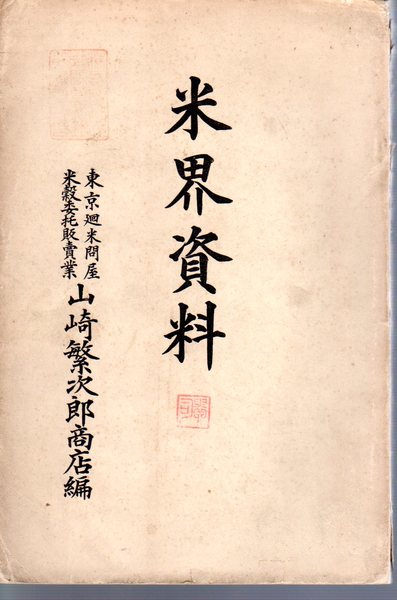 米界資料
東京廻米問屋
米穀委托販賣業
山崎繁次郎商店編